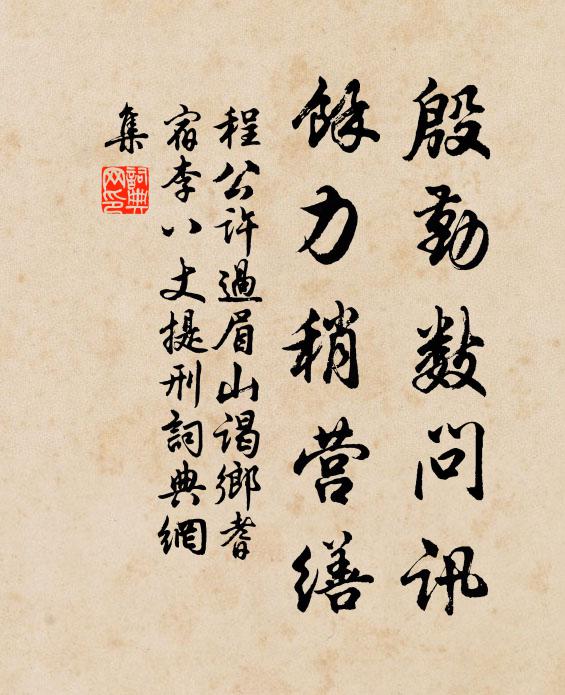 殷勤数问讯
馀力稍营缮
程公许过眉山谒乡耆
宿李八丈提刑词典网
集
词典网印